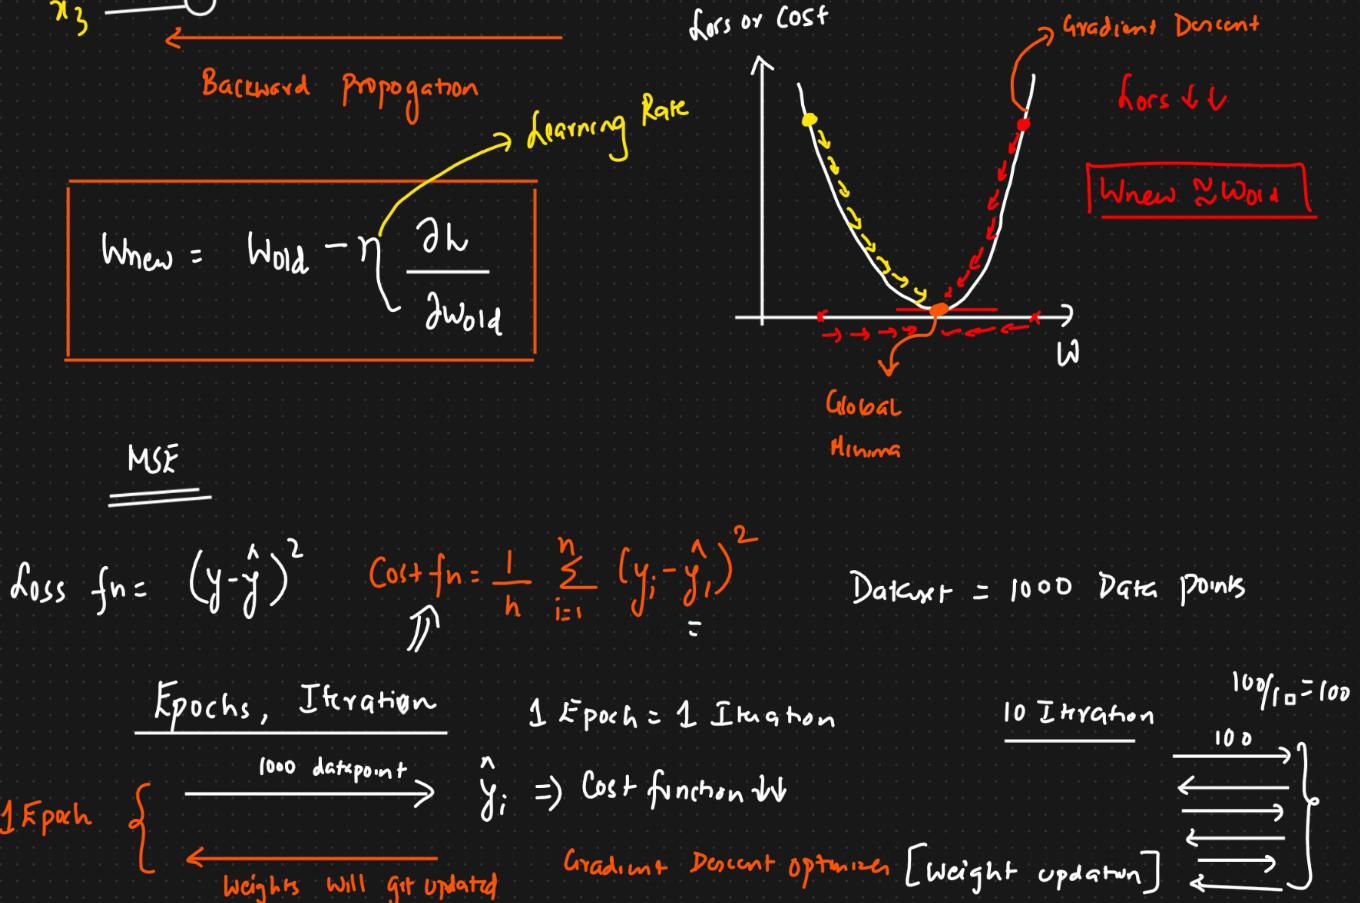 x3
Backward Propogation
Learning Rate
Wnew = Wold - η ∂L / ∂Wold
Loss or Cost
Gradient Descent
Loss ↓↓
Wnew ≈ Wold
W
Global
Minima
MSE
Loss fn = (y-ŷ)²
Cost fn = 1/n Σ i=1 n (yi - ŷi)²
Dataset = 1000 Data Points
Epochs, Iteration
1 Epoch = 1 Iteration
10 Iteration
100/10 = 100
100
1000 datapoint
ŷi ⇒ Cost function ↓↓
1 Epoch
Weights will get updated
Gradient Descent optimizer [Weight updation]